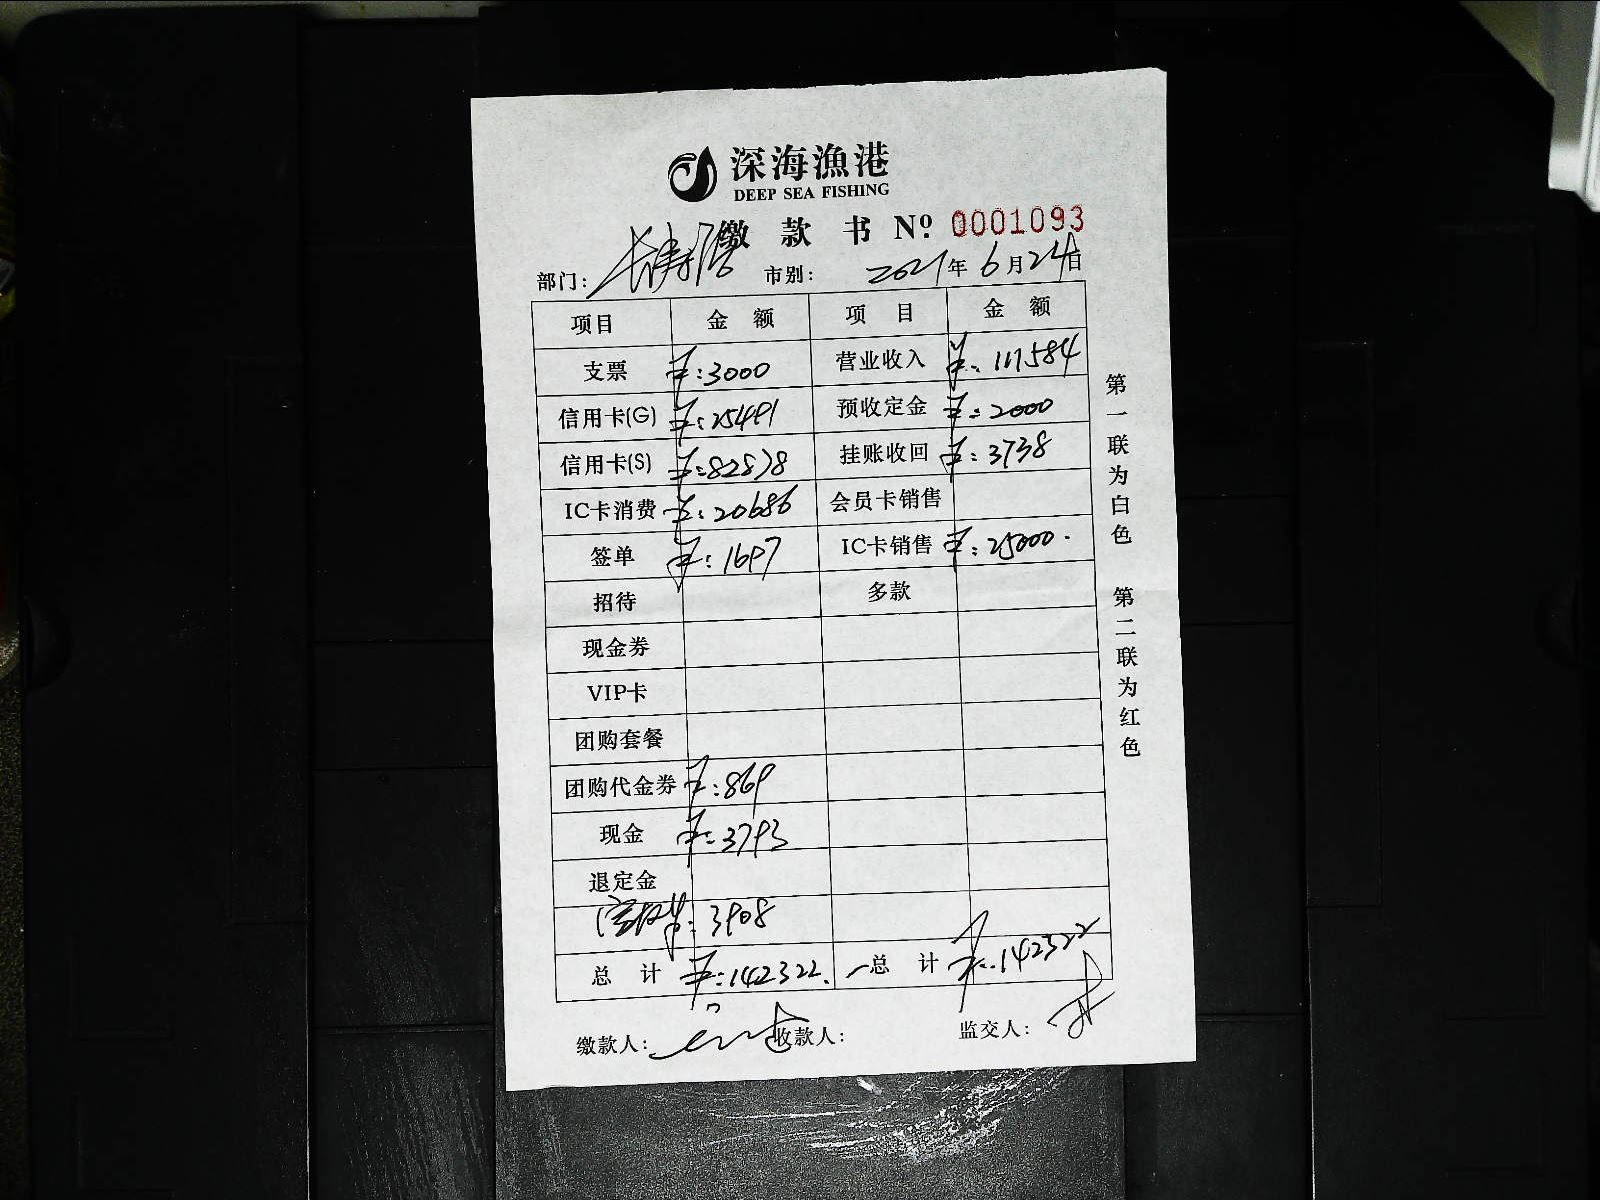 深海渔港
DEEP SEA FISHING
缴 款 书 Nº 0001093
部门： 市别： 2021年 6月24日
项目 金 额 项 目 金 额
支票 ¥:3000 营业收入 ¥:111584
信用卡(G) ¥:25491 预收定金 ¥:2000
信用卡(S) ¥:82878 挂账收回 ¥:3738
IC卡消费 ¥:20686 会员卡销售
签单 ¥:1697 IC卡销售 ¥:25000.
招待 多款
现金券
VIP卡
团购套餐
团购代金券 ¥:869
现金 ¥:3793
退定金
¥:3908
总 计 ¥:142322. 总 计 ¥:142322
缴款人： 收款人： 监交人：
第一联为白色 第二联为红色